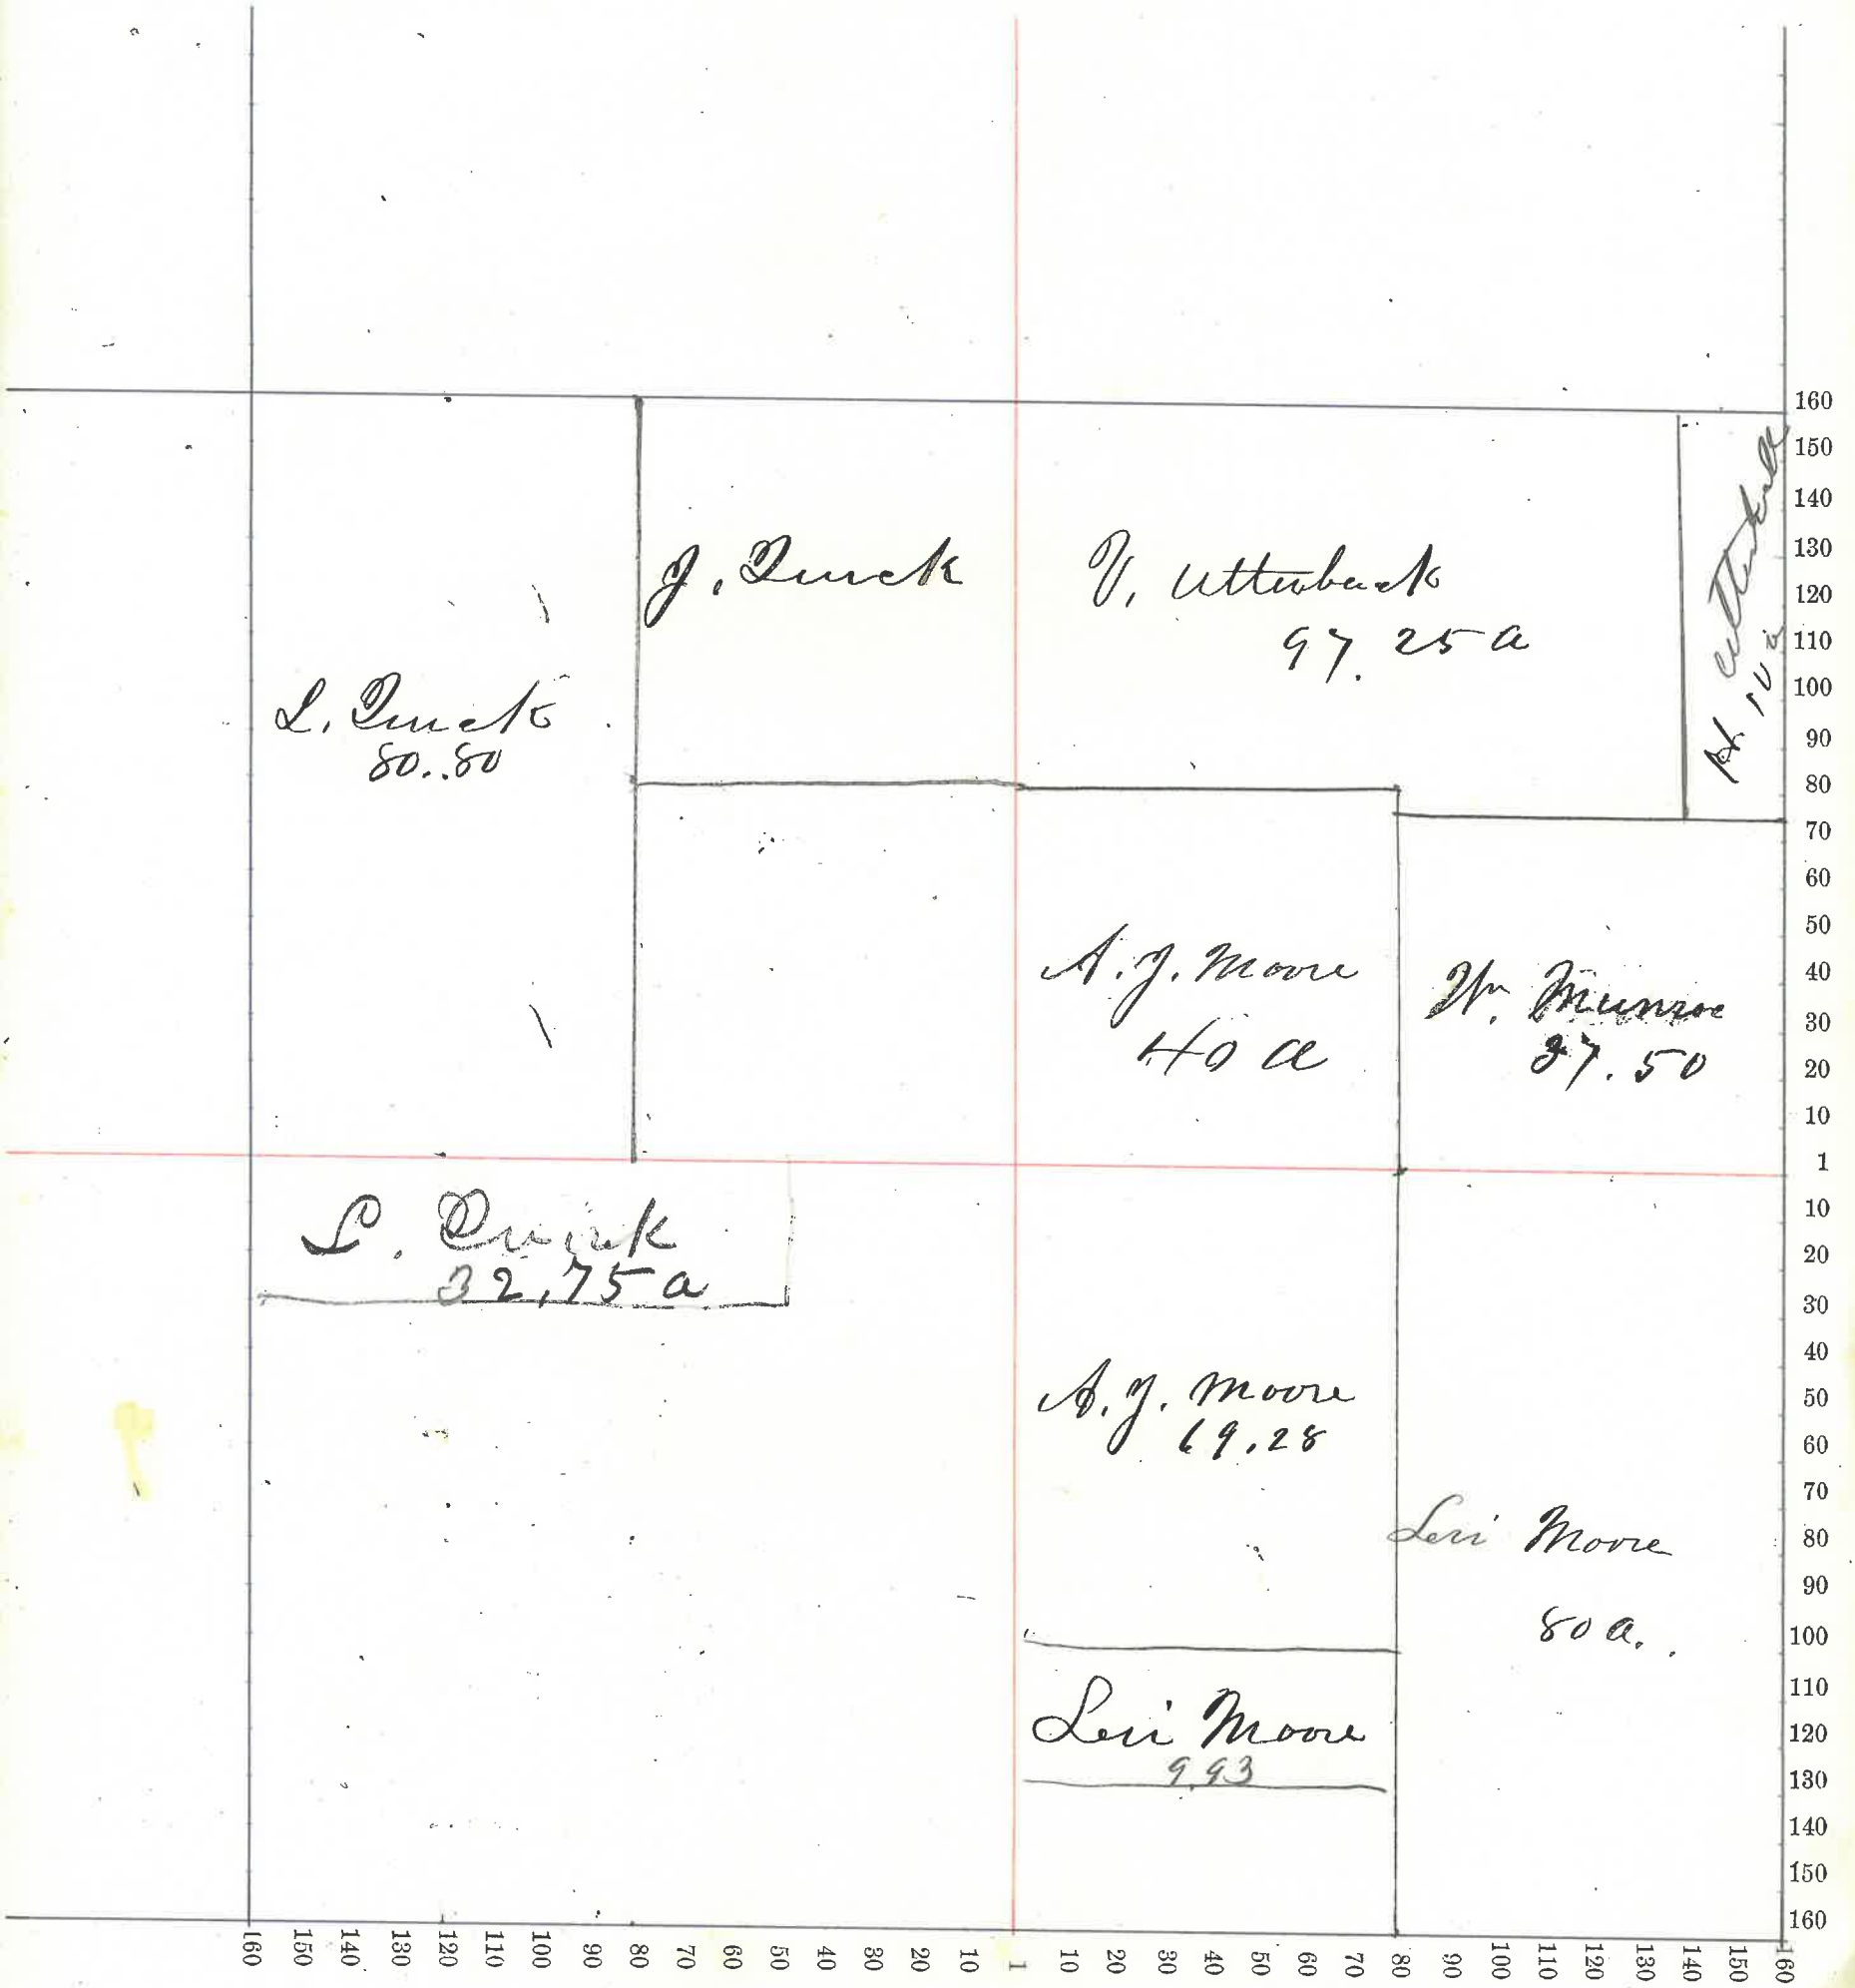 J. Quick
V. Utterback
97.25 a
H. Utterback
10 a
L. Quick
80..80
A. J. Moore
40 a
Wm. Munroe
37.50
L. Quick
32,75 a
A. J. Moore
69.28
Levi Moore
80 a.
Levi Moore
9.93
160
150
140
130
120
110
100
90
80
70
60
50
40
30
20
10
1
10
20
30
40
50
60
70
80
90
100
110
120
130
140
150
160
160 150 140 130 120 110 100 90 80 70 60 50 40 30 20 10 1 10 20 30 40 50 60 70 80 90 100 110 120 130 140 150 160